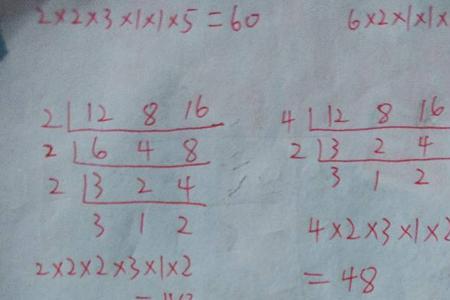 2×2×3×1×1×5=60
6×2×1×1×
2 12 8 16
2 6 4 8
2 3 2 4
3 1 2
2×2×2×3×1×2
4 12 8 16
2 3 2 4
3 1 2
4×2×3×1×2
=48